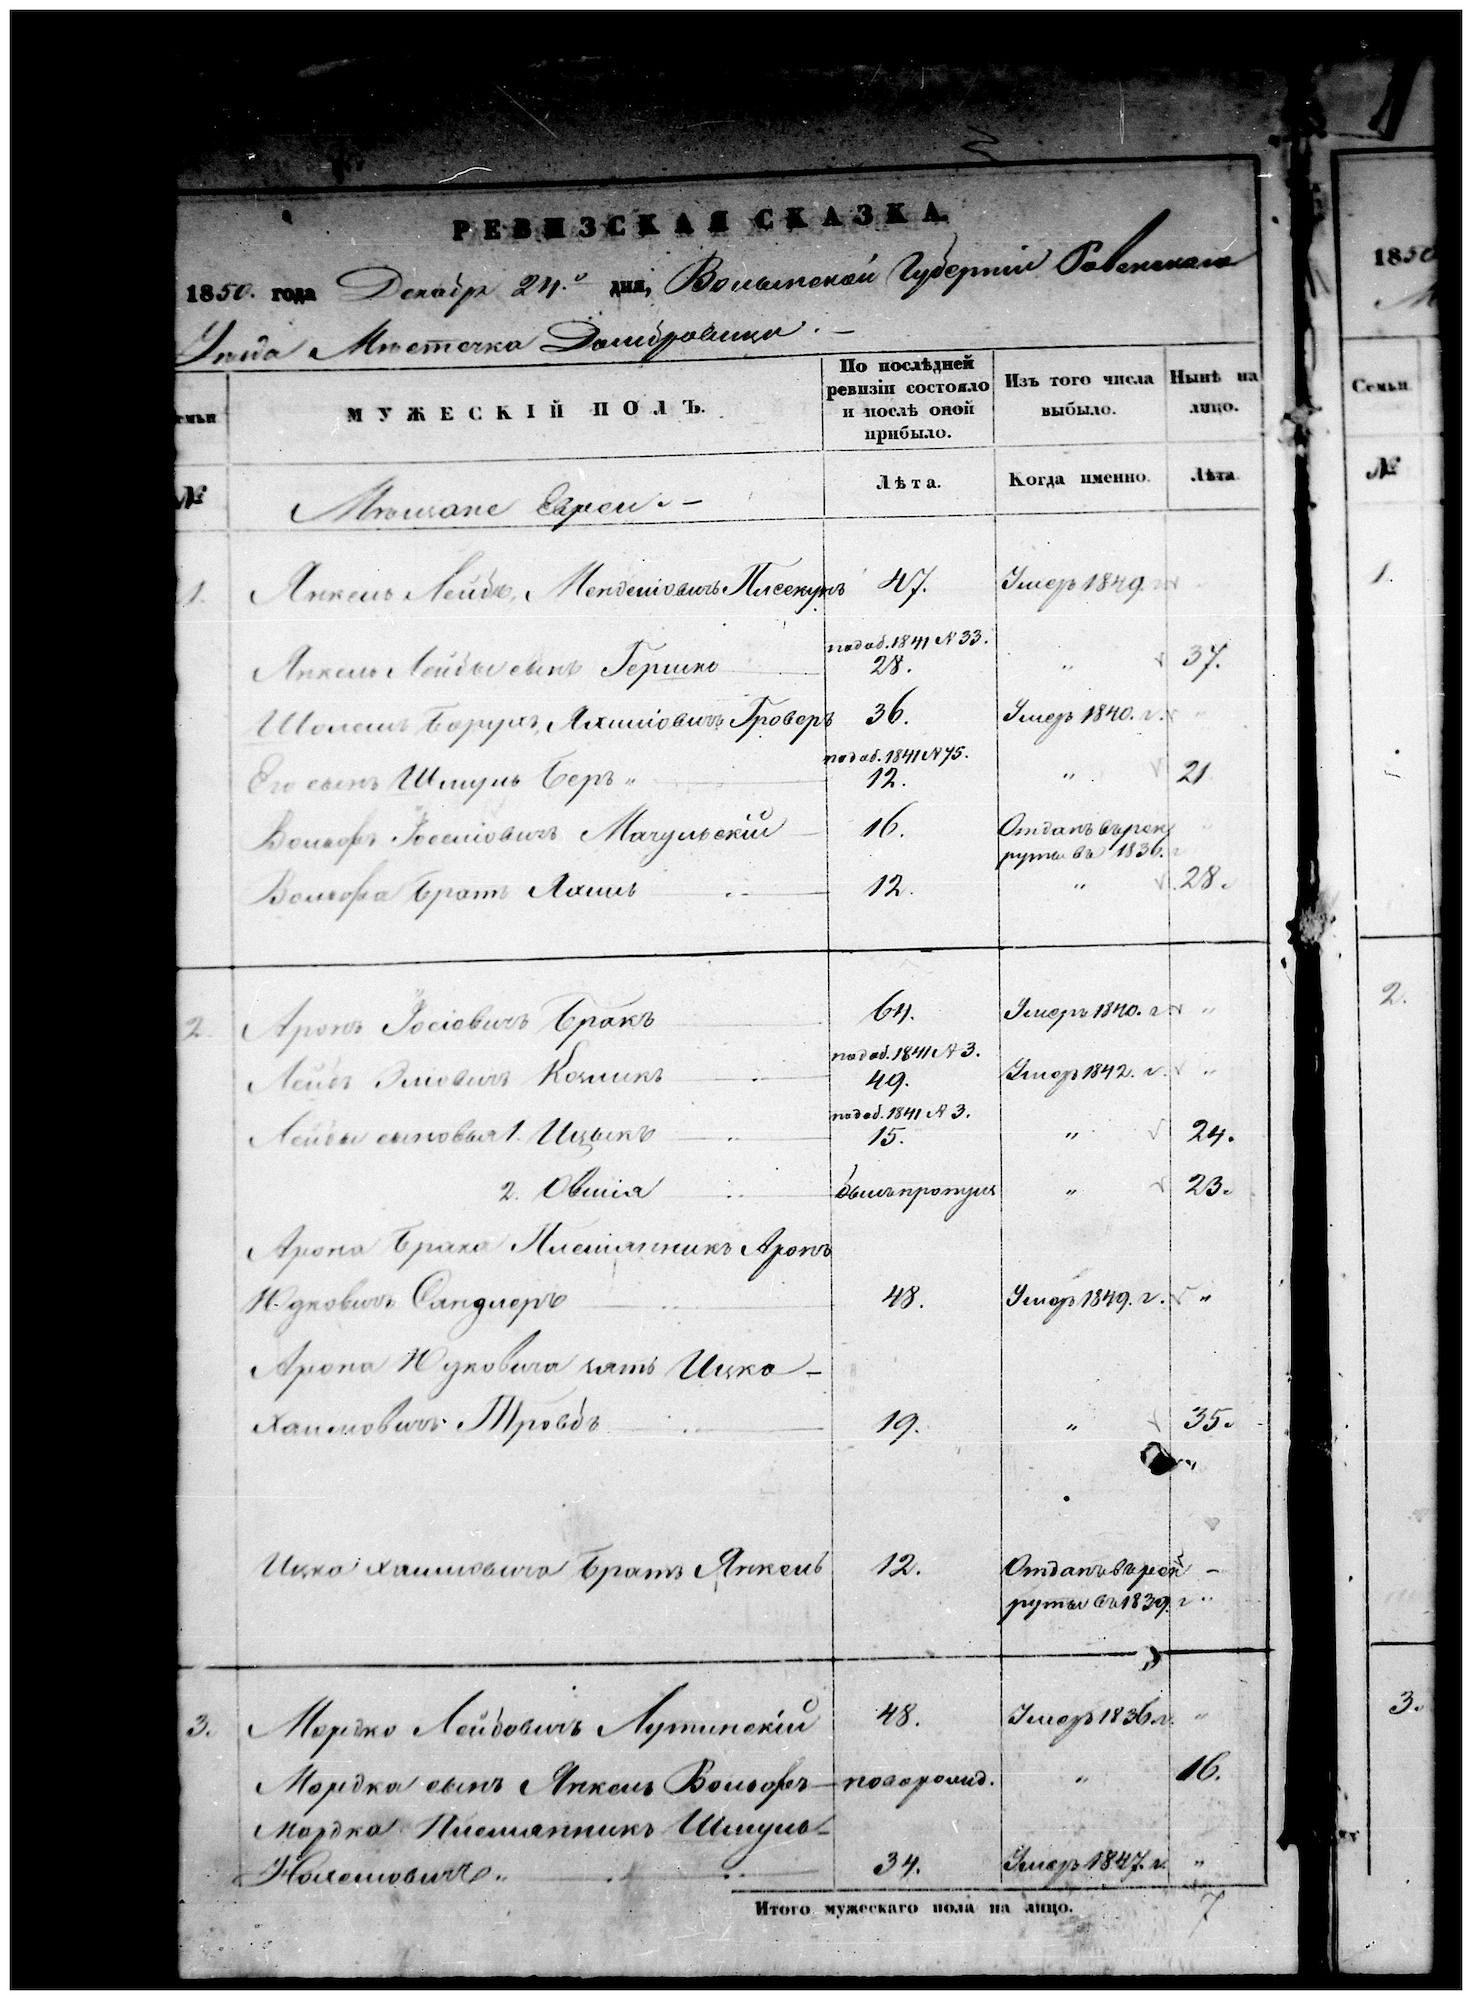 РЕВИЗСКАЯ СКАЗКА.
1850. года Декабр 24.о дня, Волынской Губернiи Ровенскаго
Уезда Мѣстечка Домбровица. —
емьи
МУЖЕСКІЙ ПОЛЪ.
По послѣдней
ревизіи состояло
и послѣ оной
прибыло.
Изъ того числа
выбыло.
Нынѣ на
лицо.
№
Лѣта.
Когда именно.
Лѣта.
Мѣщане Евреи. —
1. Янкель Лейбъ, Менделіовичъ Писекунъ 47. Умеръ 1849. г
по доб. 1841 № 33.
Янкель Лейбы сынъ Гершко 28. " 37.
Шолемъ Борухъ, Яхиліовичъ Гроверъ 36. Умеръ 1840. г. "
по доб. 1841 № 75.
Его сынъ Шмуль Беръ " 12. " 21
Вольфъ Іоселіовичъ Мачульскій 16. Отданъ въ рек
руты въ 1836. г
Вольфа братъ Яхиль 12. " 28.
2. Аронъ Іосіовичъ Бракъ 64. Умеръ 1840. г "
по доб. 1841 № 3.
Лейбъ Элиовичъ Козликъ 49. Умеръ 1842. г. "
по доб. 1841 № 3.
Лейбы сыновья 1. Ицыкъ 15. " 24.
2. Овшія былъ пропущ " 23.
Арона Брака Племянникъ Аронъ
Юдковичъ Сандлеръ 48. Умеръ 1849. г. "
Арона Юдковича зять Ицко —
Хаимовичъ Тровбъ 19. " 35.
Ицка Хаимовича братъ Янкель 12. Отданъ въ рек —
руты въ 1839. г "
3. Мордко Лейбовичъ Лутинскій 48. Умеръ 1836 г. "
Мордка сынъ Янкель Вольфъ — новорожд. " 16.
Мордка Племянникъ Шмуль —
Нохемовичъ " 34. Умеръ 1847. г. "
Итого мужескаго пола на лицо. 7
1850
Семьи
№
1.
2.
3.